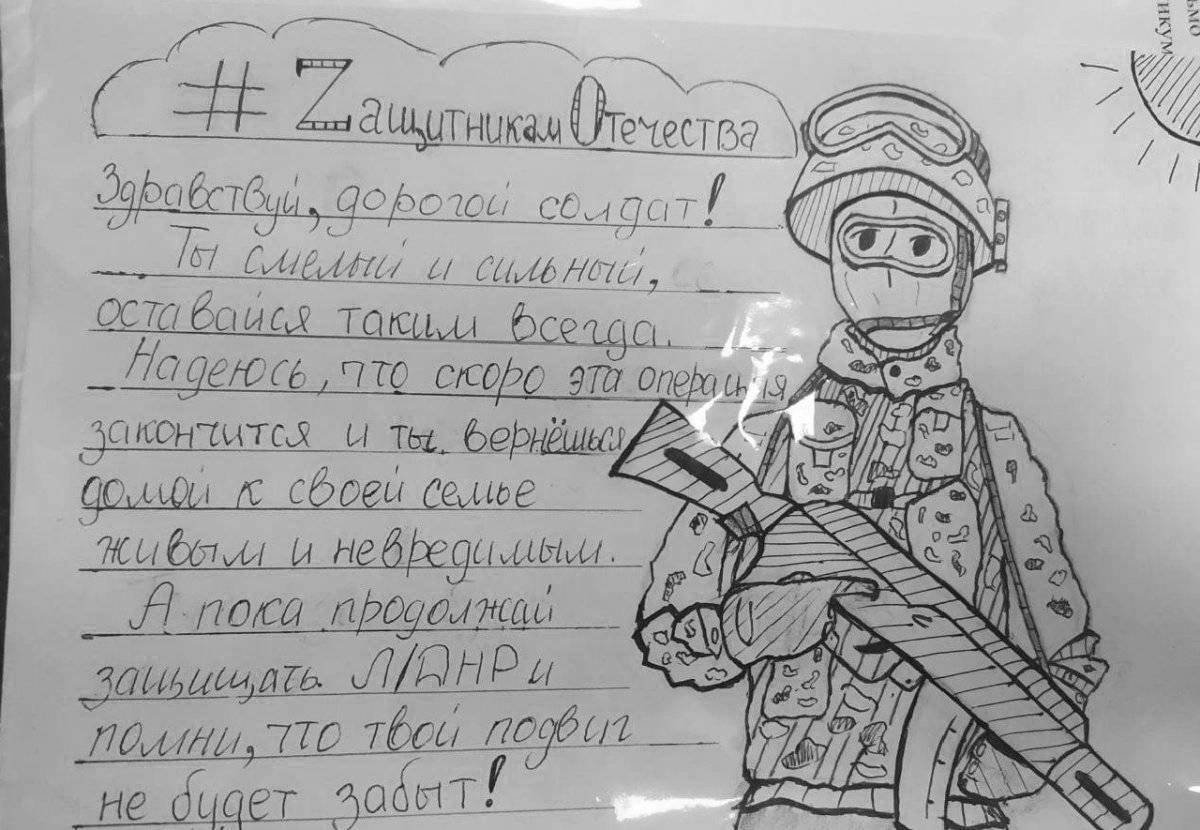 #Zащитникам Отечества
Здравствуй, дорогой солдат!
Ты смелый и сильный,
оставайся таким всегда.
Надеюсь, что скоро эта операция
закончится и ты вернёшься
домой к своей семье
живым и невредимым.
А пока продолжай
защищать Л/ДНР и
помни, что твой подвиг
не будет забыт!